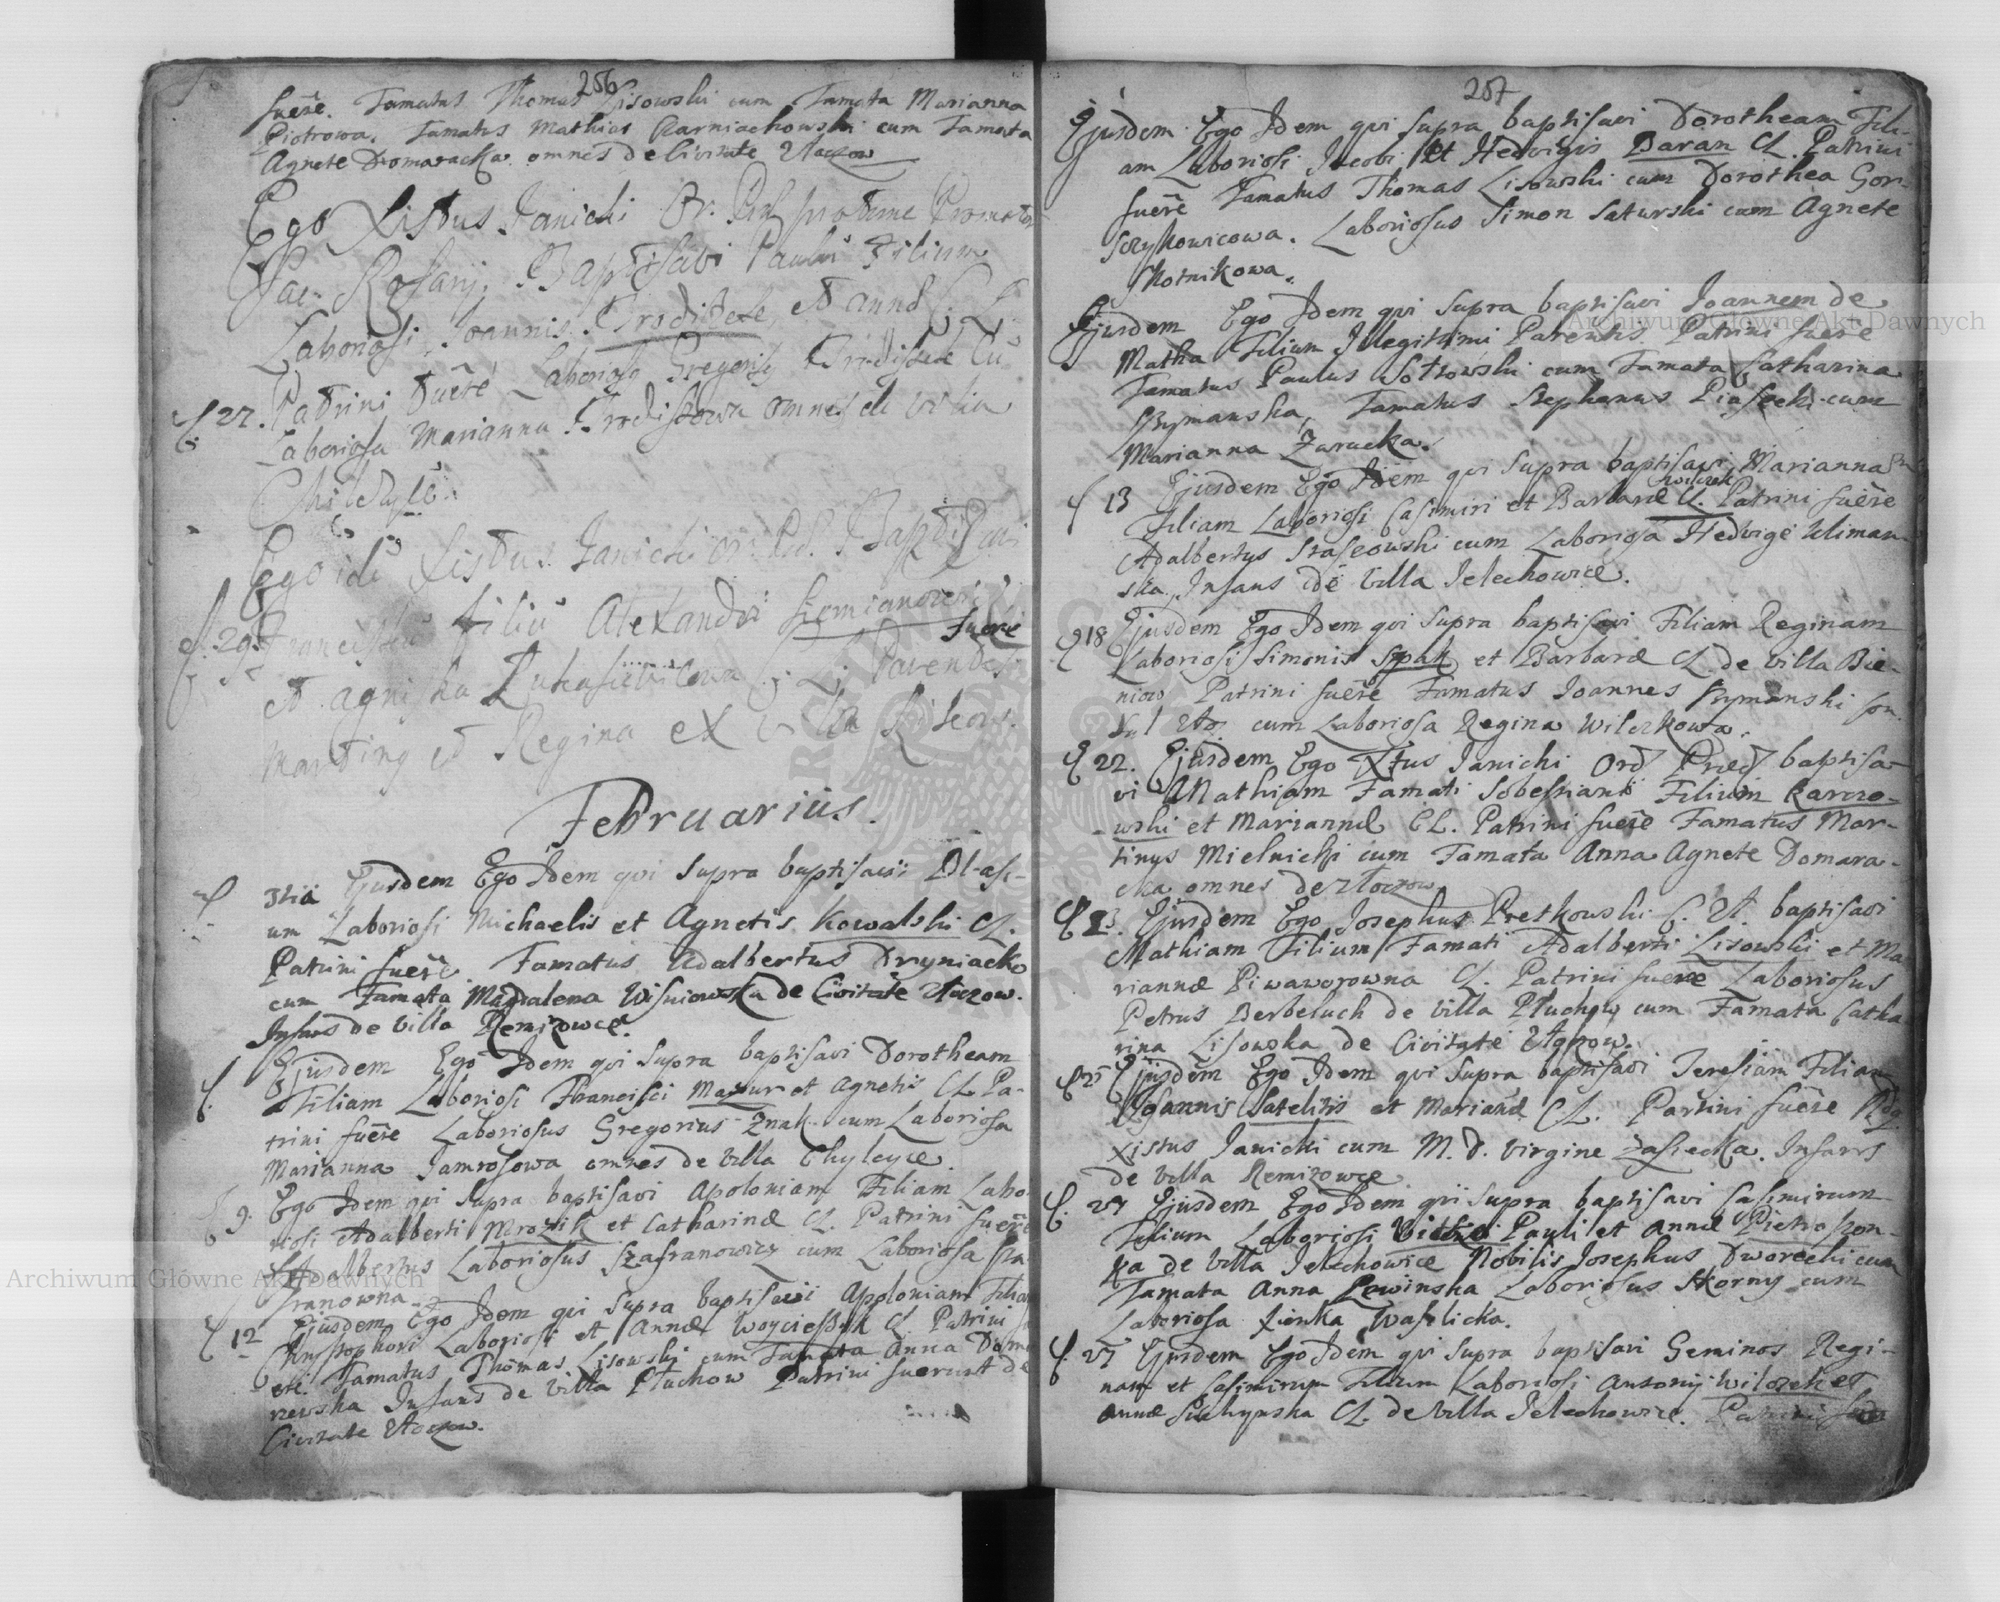 256
fuere. Famatus Thomas Lisowski cum Famata Marianna
Piotrowa. Famatus Mathias Karniachowski cum Famata
Agnete Domaracka omnes de Civitate Złoczow
Ego Xistus Janicki Or: Præd protunc Promotor
Sac: Rosarij. Baptisavi Paulū Filium
Laboriosi Joannis et Annæ C. L.
Patrini Fuēre Laboriosg Gregorig cū
℟. 27.
Laboriosa Marianna omnes de villa
Chilczyce
Ego idē Xistus Janicki or: Præd. Baptisavi
29. Franciscū filiū Alexandri Siemianowski
Fuere
et Agniska Łukasiewiczowa C: L: Levantes
Marting et Regina ex villa
Februarius.
3tia Ejusdem Ego Idem qvi supra baptisavi Blasi-
um Laboriosi Michaelis et Agnetis Kowalski CL.
Patrini fuēre Famatus Adalbertus Dryniacki
cum Famata Magdalena Wisniowska de Civitate Złoczow.
Infans de Villa Remizowce.
Ejusdem Ego Idem qvi supra baptisavi Dorotheam
Filiam Laboriosi Francisci Mazur et Agnetis CL. Pa-
trini fuēre Laboriosus Gregorius Znak cum Laboriosa
Marianna Jamrosowa omnes de Villa Chylczyce.
9. Ego Idem qvi supra baptisavi Apoloniam Filiam Labo
riosi Adalberti Mrozik et Catharinæ CL. Patrini fuēre
Adalbertus Laboriosus Szafranowicz cum Laboriosa Sza
franowna
12 Ejusdem Ego Idem qvi supra baptisavi Apoloniam Filiam
Christophori Laboriosi et Annæ Woycieszyk CL. Patrini
ere. Famatus Thomas Lisowski cum Famata Anna
rzewska Infans de Villa Pluchow Patrini fuerunt de
Civitate Złoczow.
257
Ejusdem Ego Idem qvi supra baptisavi Dorotheam Fili-
am Laboriosi Jacobi et Hedvigis Baran CL. Patrini
fuēre Famatus Thomas Lisowski cum Dorothea Gor-
sczykowicowa. Laboriosus Simon Saturski cum Agnete
Skotnikowa.
Ejusdem Ego Idem qvi supra baptisavi Joannem de
Matha Filium Illegitimi Parentis. Patrini fuēre
Famatus Paulus Sotkowski cum Famata Catharina
Szymanska, Famatus Stephanus Piasecki cum
Marianna Zuracka.
13 Ejusdem Ego Idem qvi supra baptisavi Mariannam
Filiam Laboriosi Casimiri et Barbaræ CL. Patrini fuēre
Adalbertus Staszowski cum Laboriosa Hedvige Uliman-
ska, Infans de Villa Jelechowice.
18 Ejusdem Ego Idem qvi supra baptisavi Filiam Reginam
Laboriosi Simonis Szpak et Barbaræ CL de Villa Bie-
niow Patrini fuēre Famatus Joannes Szymanski Con-
sul Zło: cum Laboriosa Regina Wilczkowa.
22. Ejusdem Ego Xstus Janicki Ord Præd baptisa-
vi Mathiam Famati Sobestiani Filium Karczo-
wski et Mariannæ CL. Patrini fuere Famatus Mar-
tinus Mielnicki cum Famata Anna Agnete Domara-
cka omnes de Złoczow
23. Ejusdem Ego Josephus Pretkowski C. Zł. baptisavi
Mathiam Filium Famati Adalberti Lisowski et Ma
riannæ Piwaworowna CL. Patrini fuere Laboriosus
Petrus Berbeluch de Villa Pluchow cum Famata Catha
rina Lisowska de Civitate Złoczow.
25 Ejusdem Ego Idem qvi supra baptisavi Teresiam Filiam
Joannis Satelitis et Mariannæ CL. Patrini fuēre Rdg
Xistus Janicki cum M. D. Virgine Zasiecka. Infans
de Villa Remizowce
27 Ejusdem Ego Idem qvi supra baptisavi Casimirum
Filium Laboriosi Pauli et Annæ Pietroszon-
ka de Villa Jelechowice Nobilis Josephus Dworecki cum
Famata Anna Lewinska Laboriosus Skorny cum
Laboriosa Xienka Waslicka.
27 Ejusdem Ego Idem qvi supra baptisavi Geminos Regi-
nam et Casimirum Filium Laboriosi Antonij Wilczek et
Annæ Suchynska CL. de Villa Jelechowice. Patrini fuere
Archiwum Główne Akt Dawnych
Archiwum Główne Akt Dawnych